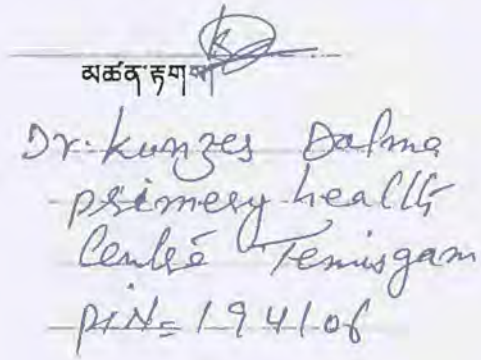 མཚན་རྟགས།
Dr. Kunzes Dalma
primery health
Centre Temisgam
PIN = 194106